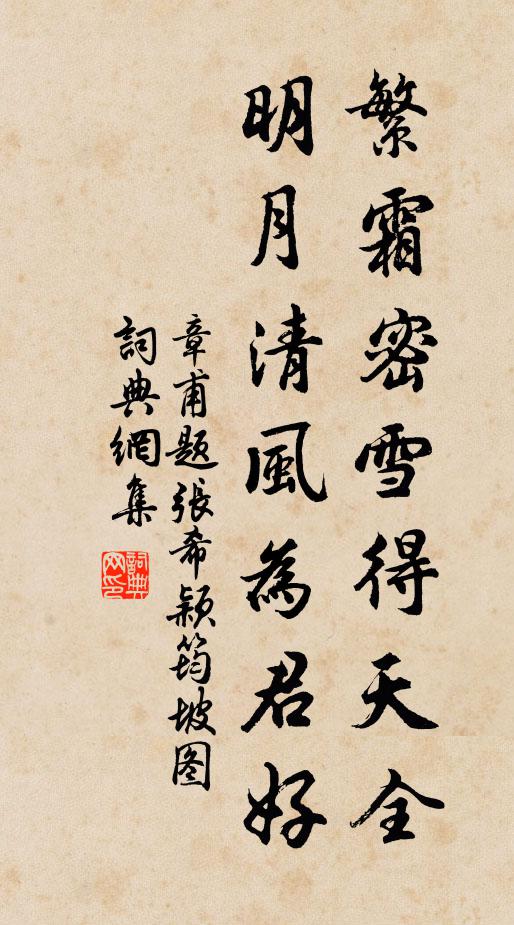 繁霜密雪得天全
明月清風為君好
章甫题張希颖筠坡图
詞典網集
詞典网印